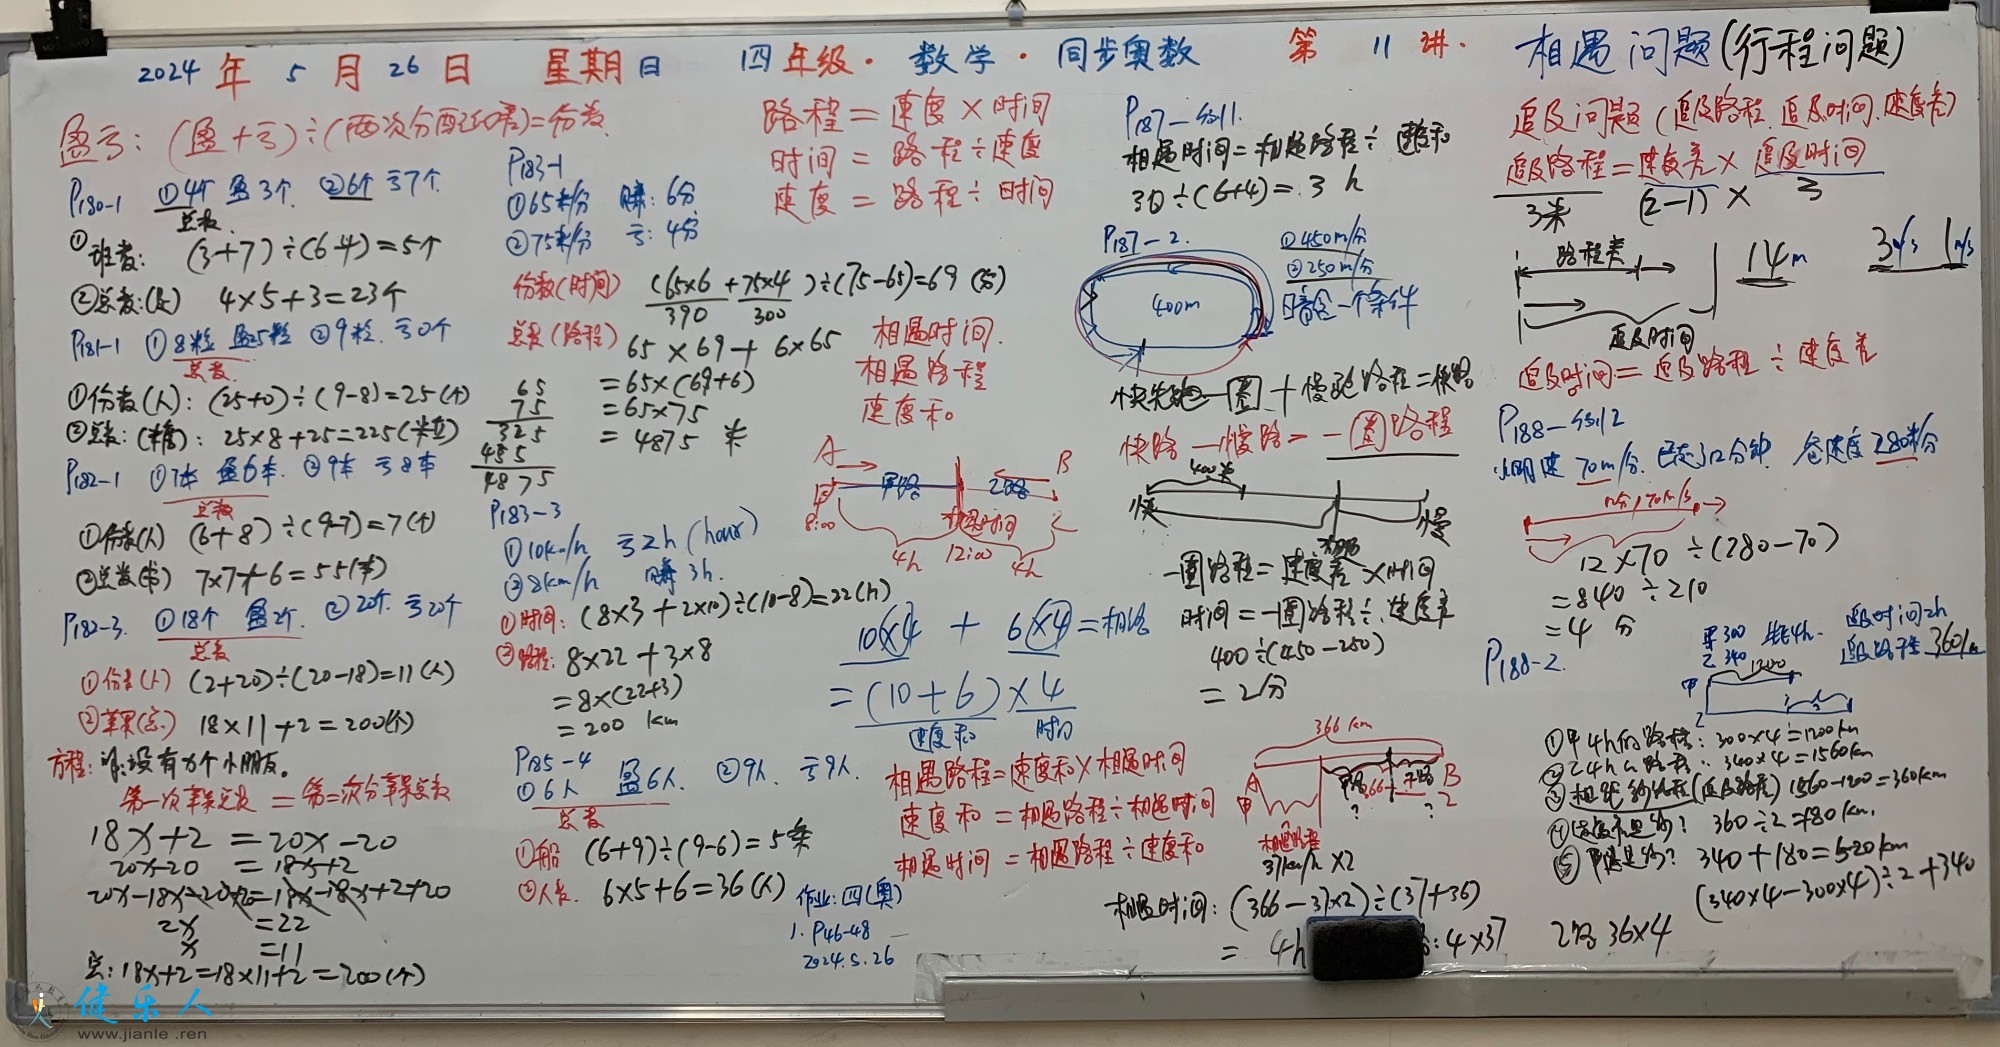 2024年5月26日 星期日 四年级·数学·同步奥数 第11讲. 相遇问题(行程问题)
盈亏:(盈+亏)÷(两次分配的差)=份数
P180-1 ①4个 盈3个 ②6个 亏7个.
总数.
①班数: (3+7)÷(6-4)=5个
②总数:(总) 4×5+3=23个
P181-1 ①8粒 盈25粒 ②9粒. 亏0个
总数.
①份数(人): (25+0)÷(9-8)=25(个)
②总数:(糖): 25×8+25=225(粒)
P182-1 ①7本 盈6本. ②9本 亏8本
总数
①份数(人) (6+8)÷(9-7)=7(个)
②总数(本) 7×7+6=55(本)
P182-3. ①18个 盈2个. ②20个. 亏20个
总数
①份数(人) (2+20)÷(20-18)=11(人)
②苹果(总.) 18×11+2=200(个)
方程: 设有x个小朋友。
第一次苹果总数=第二次分苹果总数
18x+2=20x-20
20x-20=18x+2
20x-18x-20+20=18x-18x+2+20
2x=22
x=11
总:18x+2=18×11+2=200(个)
P183-1
①65米/分 赚:6分
②75米/分 亏:4分
份数(时间) (65×6+75×4)÷(75-65)=69(分)
390 300
总数(路程) 65×69+6×65
=65×(69+6)
=65×75
=4875 米
65
75
325
455
4875
P183-3
①10km/h 亏2h(hour)
②8km/h 赚3h.
①时间: (8×3+2×10)÷(10-8)=22(h)
②路程: 8×22+3×8
=8×(22+3)
=200 km
P185-4
①6人 盈6人. ②9人. 亏9人.
总数
①船 (6+9)÷(9-6)=5条
②人数. 6×5+6=36(人)
作业:四(奥)
1. P46-48
2024.5.26
路程=速度×时间
时间=路程÷速度
速度=路程÷时间
相遇时间.
相遇路程
速度和。
A B
甲路 乙路
8:00 相遇时间 乙
4h 12:00 4h
10×4 + 6×4=相路
=(10+6)×4
速度和 时间
相遇路程=速度和×相遇时间
速度和=相遇路程÷相遇时间
相遇时间=相遇路程÷速度和
P187-例11.
相遇时间=相遇路程÷速度和
30÷(6+4)=3h
P187-2.
①450m/分
②250m/分
暗含一个条件
400m
快先跑一圈+慢跑路程=快路
快路-慢路=一圈路程
400米
快 慢
一圈路程=速度差×时间
时间=一圈路程÷速度差
400÷(450-250)
=2分
366km
A B
甲 乙
? ?
相遇路程
37km/h×2
相遇时间: (366-37×2)÷(37+36)
=4h
:4×37 乙路 36×4
追及问题(追及路程.追及时间.速度差)
追及路程=速度差×追及时间
3米 (2-1)× 3
路程差 14m 3m/s 1m/s
追及时间
追及时间=追及路程÷速度差
P188-例12
小明速70m/分. 已走12分钟. 爸速度280米/分
12×70÷(280-70)
=840÷210
=4 分
P188-2.
甲300 先4h. 追及时间2h
乙340 追及路程360km
1200
甲
乙
①甲4h的路程: 300×4=1200km
②乙4h的路程: 340×4=1560km
③相距的路程(追及路程) 1560-1200=360km
④速度差是多少? 360÷2=180km.
⑤甲速是多少? 340+180=520km
(340×4-300×4)÷2+340
健乐人
www.jianle.ren